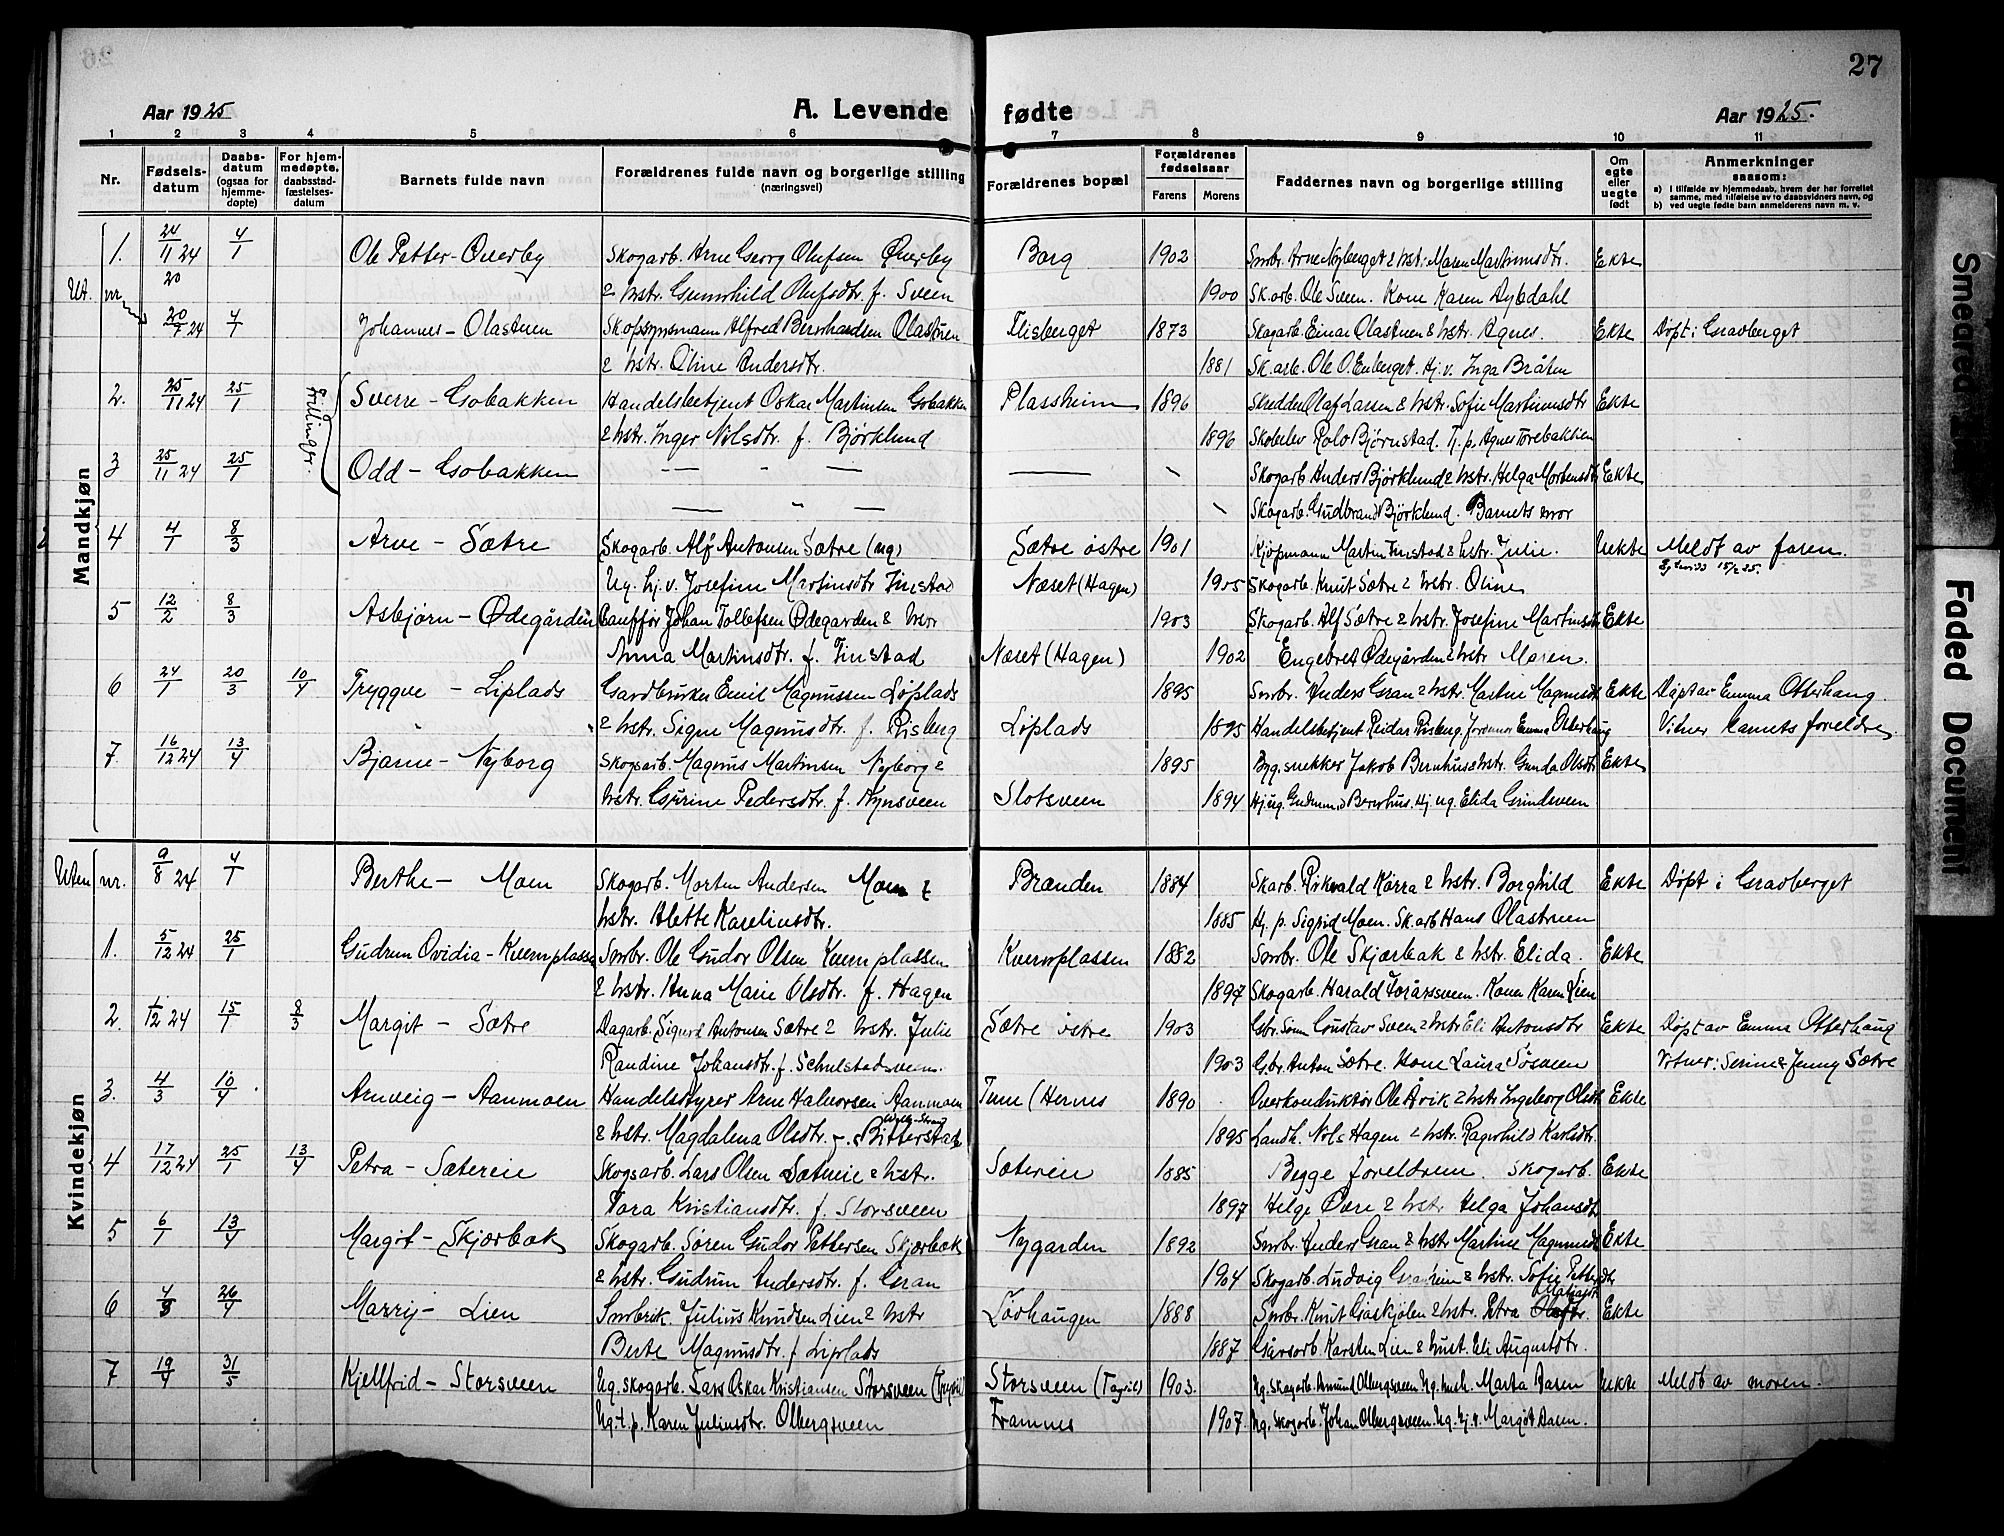 27
Aar 1925
A. Levende fødte
Aar 1925.
1 2 3 4 5 6 7 8 9 10 11
Nr.
Fødselsdatum
Daabsdatum (ogsaa for hjemmedøpte)
For hjemmedøpte, daabsstadfæstelsesdatum
Barnets fulde navn
Forældrenes fulde navn og borgerlige stilling (næringsvei)
Forældrenes bopæl
Forældrenes fødselsaar
Farens Morens
Faddernes navn og borgerlige stilling
Om egte eller uegte født
Anmerkninger saasom:
a) i tilfælde av hjemmedaab, hvem der har forrettet samme, med tilføielse av to daabsvidners navn, og
b) ved uegte fødte barn anmelderens navn m. v.
Mandkjøn
1. 24/11 24 4/1 Ole Petter - Øverby Skogarb. Arne Georg Olufsen Øverby Borg 1902 Smbr. Arne Nyberget & hstr. Maren Martinusdtr. Ekte
& hstr. Gunnhild Olufsdtr. f. Sveen 1900 Sk.arb. Ole Sveen. Kone Karen Nybdahl
Ut. nr. 20/7 24 4/1 Johannes - Olastuen Alfred Bernhardsen Olastuen Flisberget 1873 Skogarb. Einar Olastuen & hstr. Agnes. Ekte Døpt i Gravberget
& hstr. Oline Andersdtr. 1881 Sk.arb. Ole O. Enberget. Hj.v. Inga Bråten
2. 25/11 24 25/1 Tvillinger. Sverre - Gobakken Handelsbetjent Oskar Martinsen Gobakken Plassheim 1896 Skredder Olaf Larsen & hstr. Sofie Martinusdtr Ekte
& hstr. Inger Nilsdtr. f. Bjørklund 1896 Bjørnstad. T.p. Agnes Torebakken
3 25/11 24 25/1 Odd - Gobakken — " — — Skogarb. Anders Bjørklund & hstr. Helga Mortensdtr Ekte
— " — Skogarb. Gudbrand Bjørklund. Barnets mor
4 4/1 8/3 Arve - Sætre Skogarb. Alf Antonsen Sætre (ug) Sætre østre 1901 Kjøpmann Martin Finstad & hstr. Julie. Uekte Meldt av faren.
Ug. hj.v. Josefine Martinsdtr Finstad Næset (Hagen) 1905 Skogarb. Knut Sætre & hstr. Oline 15/2 25.
5 12/2 8/3 Asbjørn - Ødegården Johan Tollefsen Ødegarden & hstr 1903 Skogarb. Alf Sætre & hstr. Josefine Martinsdtr Ekte
Anna Martinsdtr. f. Finstad Næset (Hagen) 1902 Engebret Ødegården & hstr Maren.
6 24/1 20/3 10/4 Tryggve - Liplads Gardbruker Emil Magnussen Løplads 1895 Smbr. Anders Gran & hstr. Martine Magnusdtr Ekte Døpt av Emma Otterhaug.
& hstr. Signe Magnusdtr. f. Risberg Løplads 1895 Handelsbetjent Reidar Risberg. Jordmor Emma Otterhaug Vitner barnets foreldre.
7 16/12 24 13/4 Bjarne - Nyborg Skogsarb. Magnus Martinsen Nyborg & 1895 Byg.snekker Jakob Bernhus & hstr. Gunda Olsdtr Ekte
hstr. Gurine Pedersdtr. f. Nynsveen Slotsveen 1894 Hj.ug. Gudmund Bernhus. Hj.ug. Elida Grindsveen
Kvindekjøn
Uten nr. 9/8 24 4/1 Berthe - Moen Skogarb. Morten Andersen Moen & Branden 1884 Skarb. Rikvald Kårra & hstr. Borghild Ekte Døpt i Gravberget
hstr. Alette Karelinsdtr. 1885 Hj. p. Sigrid Moen. Sk.arb Hans Olastuen
1. 5/12 24 25/1 Gudrun Ovidia - Kvernplassen Smbr. Ole Gudor Olsen Kvernplassen Kvernplassen 1882 Smbr. Ole Skjærbæk & hstr. Elida. Ekte
& hstr. Anna Marie Olsdtr. f. Hagen 1897 Skogarb. Harald Torårssveen. Kona Karen Lien
2. 1/12 24 15/1 8/3 Margit - Sætre Dagarb. Sigurd Antonsen Sætre & hstr. Julie Sætre østre 1903 Gbr.sønn Gustav Sveen & hstr Eli Antonsdtr Ekte Døpt av Emma Otterhaug
Randine Johansdtr. f. Schulstadsveen. 1903 Gbr. Anton Sætre. Kone Laura Søsveen Vitner: Serine & Jenny Sætre
3. 4/3 10/4 Arnveig - Aanmoen Handelsstyrer Arne Halvorsen Aanmoen Tune (Hernes 1890 Overkonduktør Ole Årik & hstr Ingeborg Olsdtr Ekte
& hstr. Magdalena Olsdtr. f. Bitterstad 1895 Landh. Nils Hagen & hstr. Ragnhild Karlsdtr.
4 17/12 24 25/1 13/4 Petra - Sætereie Skogsarb. Lars Olsen Sætereie & hstr. Sætereie 1885 Begge foreldrene skogarb. Ekte
Tora Kristiansdtr. f. Storsveen 1897 Helge Øvre & hstr Helga Johansdtr
5 6/1 13/4 Margit - Skjærbæk Skogarb. Søren Gudor Pettersen Skjærbæk Nygarden 1892 Smbr. Anders Gran & hstr Martine Magnusdtr Ekte
& hstr. Gudrun Andersdtr. f. Gran 1904 Skogarb. Ludvig Granheim & hstr. Sofie Pettersdtr
6 4/3 26/4 Marry - Lien Smbruk. Julius Knudsen Lien & hstr Lövhaugen 1888 Smbr. Knut Gåskjølen & hstr. Petra Ekte
Berte Magnusdtr. f Liplads 1887 Gårsarb. Karsten Lien & hust. Eli Augustdtr.
7 19/4 31/5 Kjellfrid - Storsveen Ug. skogarb. Lars Oskar Kristiansen Storsveen (Trysil) Storsveen (Trysil) 1903. Ug. skogarb. Amund Olbergsveen Ug. hush. Marta Aasen Uekte Meldt av moren.
Ug. t.p. Karen Julinsdtr. Olbergsveen Framnes 1907 Ug. skogarb. Johan Olbergsveen. Ug. hj. v. Margit Aasen.
Smeared
Faded Document